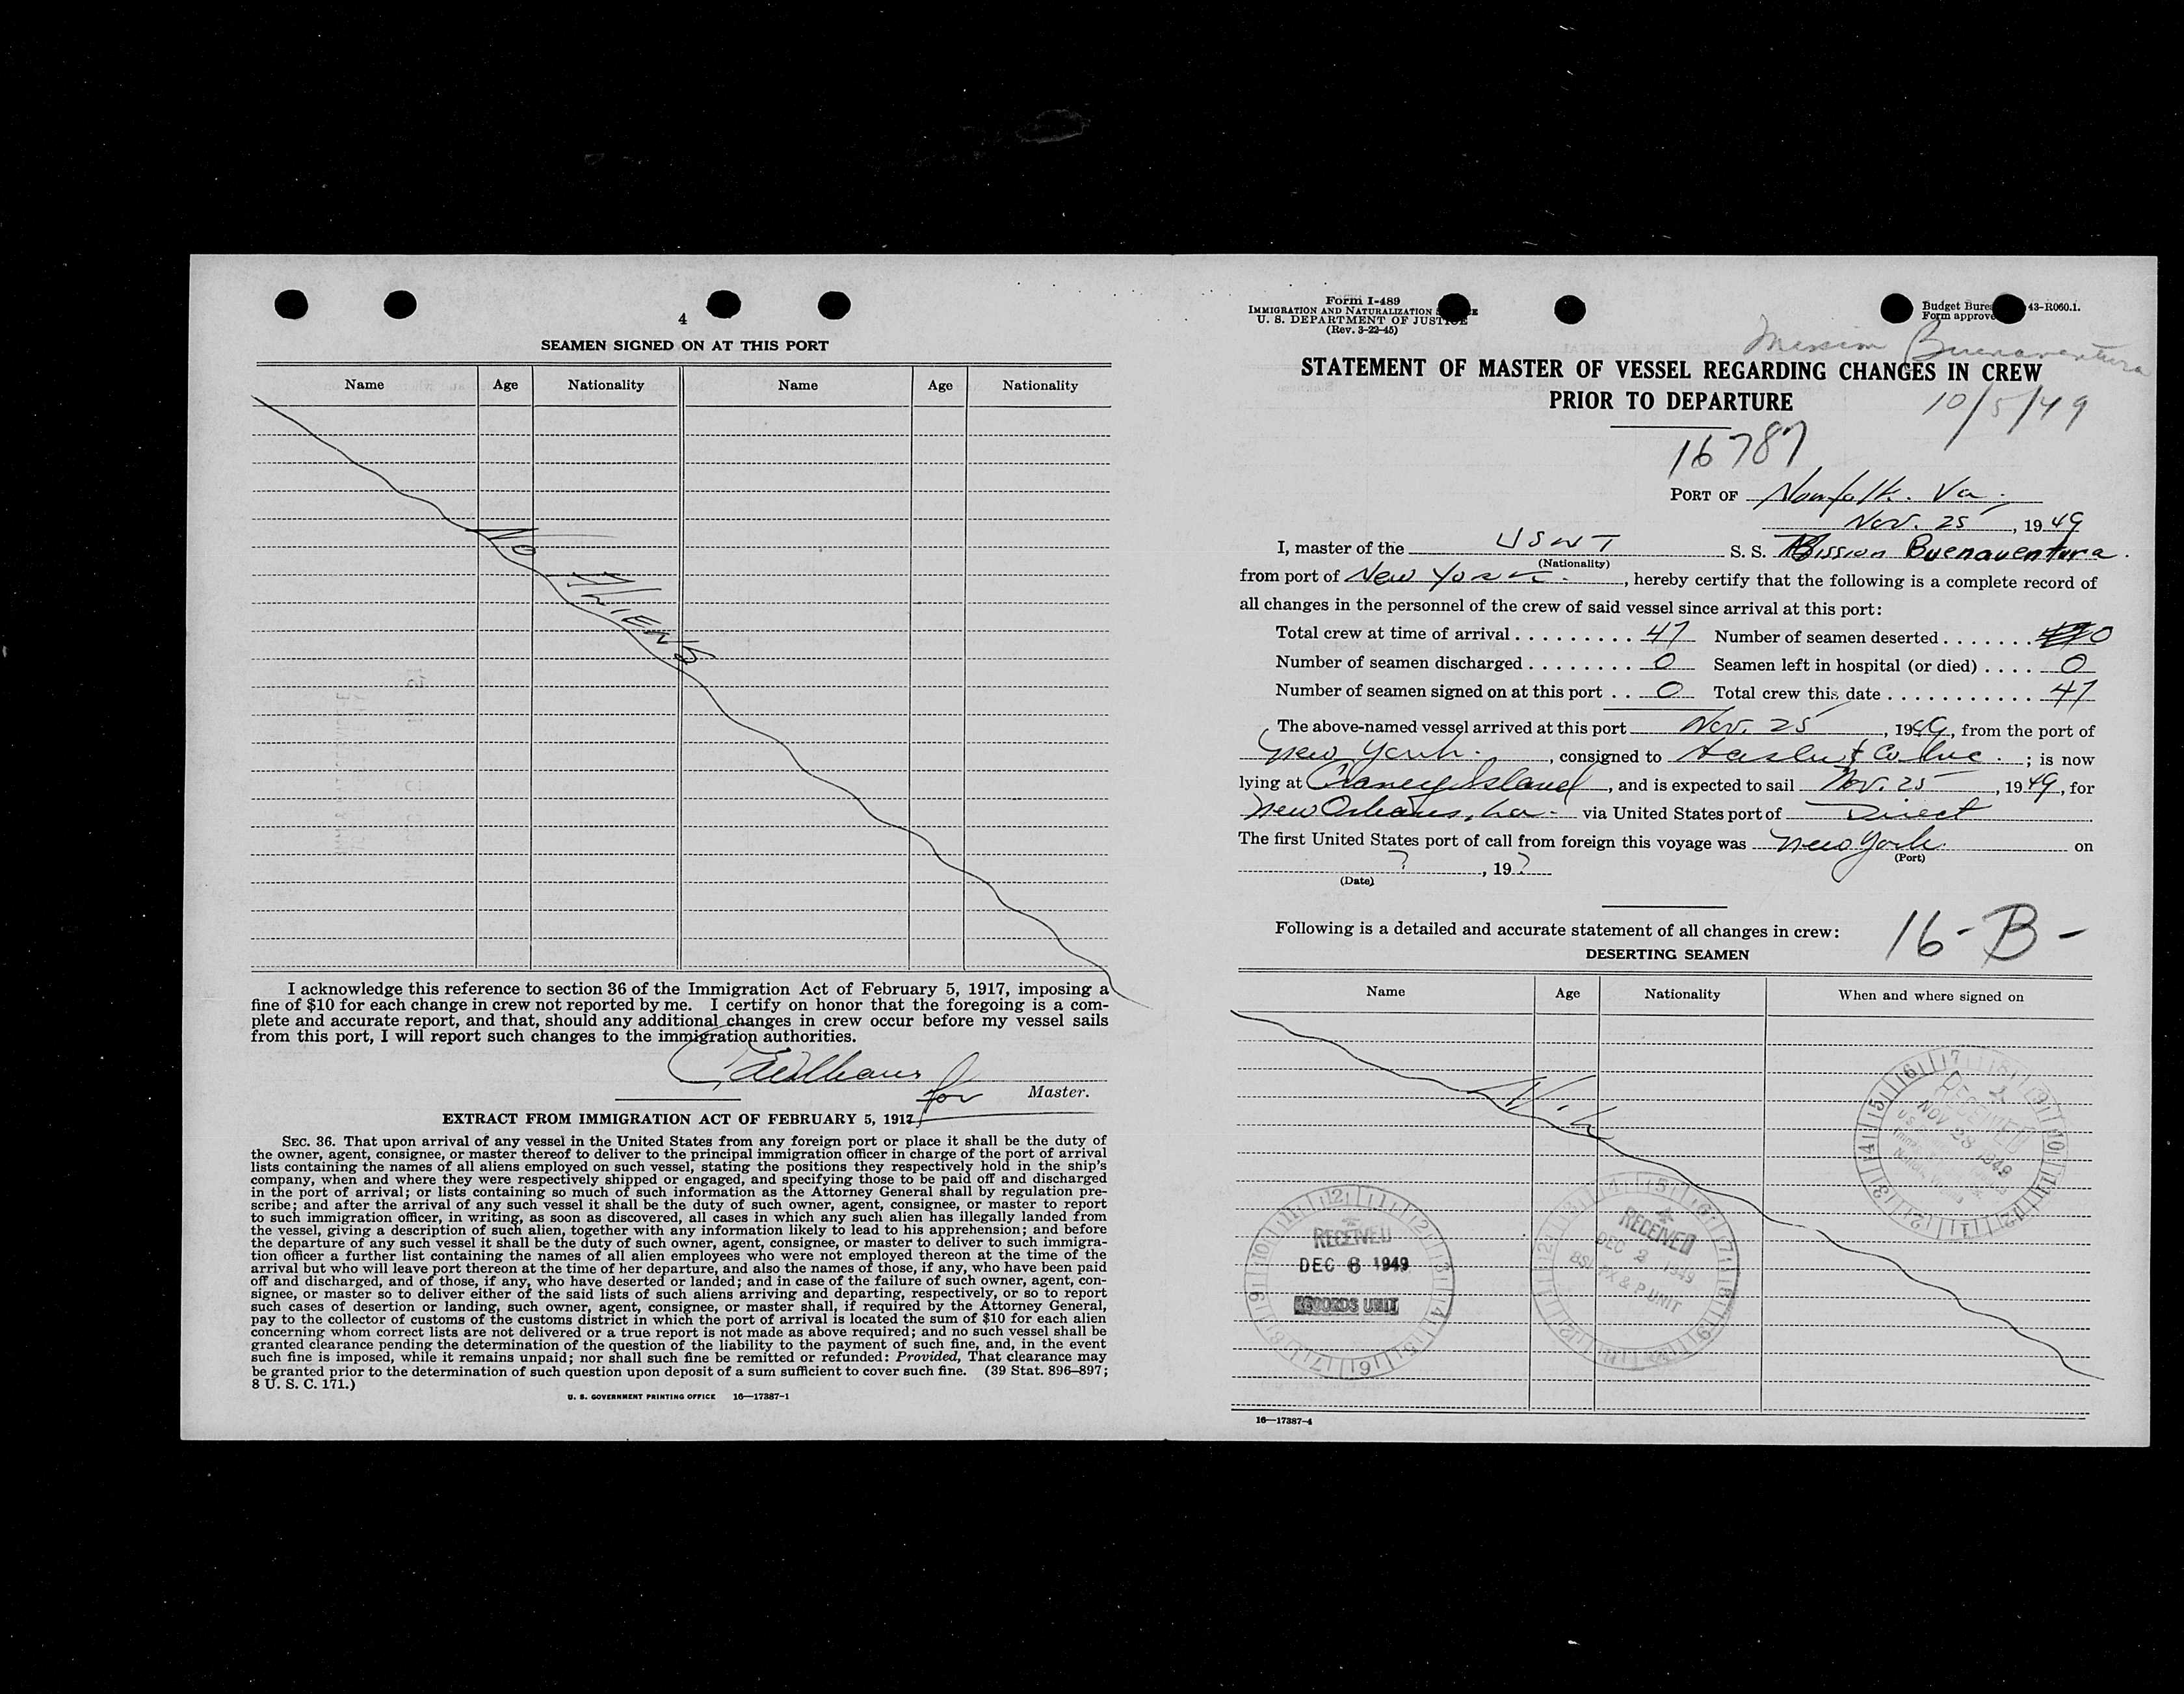 4
SEAMEN SIGNED ON AT THIS PORT
Name Age Nationality Name Age Nationality
NO
ALIENS
I acknowledge this reference to section 36 of the Immigration Act of February 5, 1917, imposing a
fine of $10 for each change in crew not reported by me. I certify on honor that the foregoing is a com-
plete and accurate report, and that, should any additional changes in crew occur before my vessel sails
from this port, I will report such changes to the immigration authorities.
for Master.
EXTRACT FROM IMMIGRATION ACT OF FEBRUARY 5, 1917
SEC. 36. That upon arrival of any vessel in the United States from any foreign port or place it shall be the duty of
the owner, agent, consignee, or master thereof to deliver to the principal immigration officer in charge of the port of arrival
lists containing the names of all aliens employed on such vessel, stating the positions they respectively hold in the ship's
company, when and where they were respectively shipped or engaged, and specifying those to be paid off and discharged
in the port of arrival; or lists containing so much of such information as the Attorney General shall by regulation pre-
scribe; and after the arrival of any such vessel it shall be the duty of such owner, agent, consignee, or master to report
to such immigration officer, in writing, as soon as discovered, all cases in which any such alien has illegally landed from
the vessel, giving a description of such alien, together with any information likely to lead to his apprehension; and before
the departure of any such vessel it shall be the duty of such owner, agent, consignee, or master to deliver to such immigra-
tion officer a further list containing the names of all alien employees who were not employed thereon at the time of the
arrival but who will leave port thereon at the time of her departure, and also the names of those, if any, who have been paid
off and discharged, and of those, if any, who have deserted or landed; and in case of the failure of such owner, agent, con-
signee, or master so to deliver either of the said lists of such aliens arriving and departing, respectively, or so to report
such cases of desertion or landing, such owner, agent, consignee, or master shall, if required by the Attorney General,
pay to the collector of customs of the customs district in which the port of arrival is located the sum of $10 for each alien
concerning whom correct lists are not delivered or a true report is not made as above required; and no such vessel shall be
granted clearance pending the determination of the question of the liability to the payment of such fine, and, in the event
such fine is imposed, while it remains unpaid; nor shall such fine be remitted or refunded: Provided, That clearance may
be granted prior to the determination of such question upon deposit of a sum sufficient to cover such fine. (39 Stat. 896–897;
8 U. S. C. 171.)
U. S. GOVERNMENT PRINTING OFFICE 16—17387-1
Form I-489
IMMIGRATION AND NATURALIZATION
U. S. DEPARTMENT OF JUSTICE
(Rev. 3-22-45)
Budget Bure 43-R060.1.
Form approve
Mission Buenaventura
STATEMENT OF MASTER OF VESSEL REGARDING CHANGES IN CREW
PRIOR TO DEPARTURE
10/5/49
16787
PORT OF Norfolk. Va.
Nov. 25, 1949
I, master of the USNT S. S. Mission Buenaventura.
(Nationality)
from port of New York., hereby certify that the following is a complete record of
all changes in the personnel of the crew of said vessel since arrival at this port:
Total crew at time of arrival . . . . . . . . . 47 Number of seamen deserted . . . . . . . 0
Number of seamen discharged . . . . . . . . 0 Seamen left in hospital (or died) . . . . 0
Number of seamen signed on at this port . . 0 Total crew this date . . . . . . . . . . . . 47
The above-named vessel arrived at this port Nov. 25, 1949, from the port of
New York., consigned to & Co Inc.; is now
lying at Craney Island, and is expected to sail Nov. 25, 1949, for
New Orleans, La. via United States port of Direct
The first United States port of call from foreign this voyage was New York on
(Port)
?, 19?
(Date)
Following is a detailed and accurate statement of all changes in crew:
16-B-
DESERTING SEAMEN
Name Age Nationality When and where signed on
Nil
RECEIVED
NOV 28 1949
RECEIVED
DEC 2 1949
RECEIVED
DEC 6 1949
RECORDS UNIT
16—17387-4